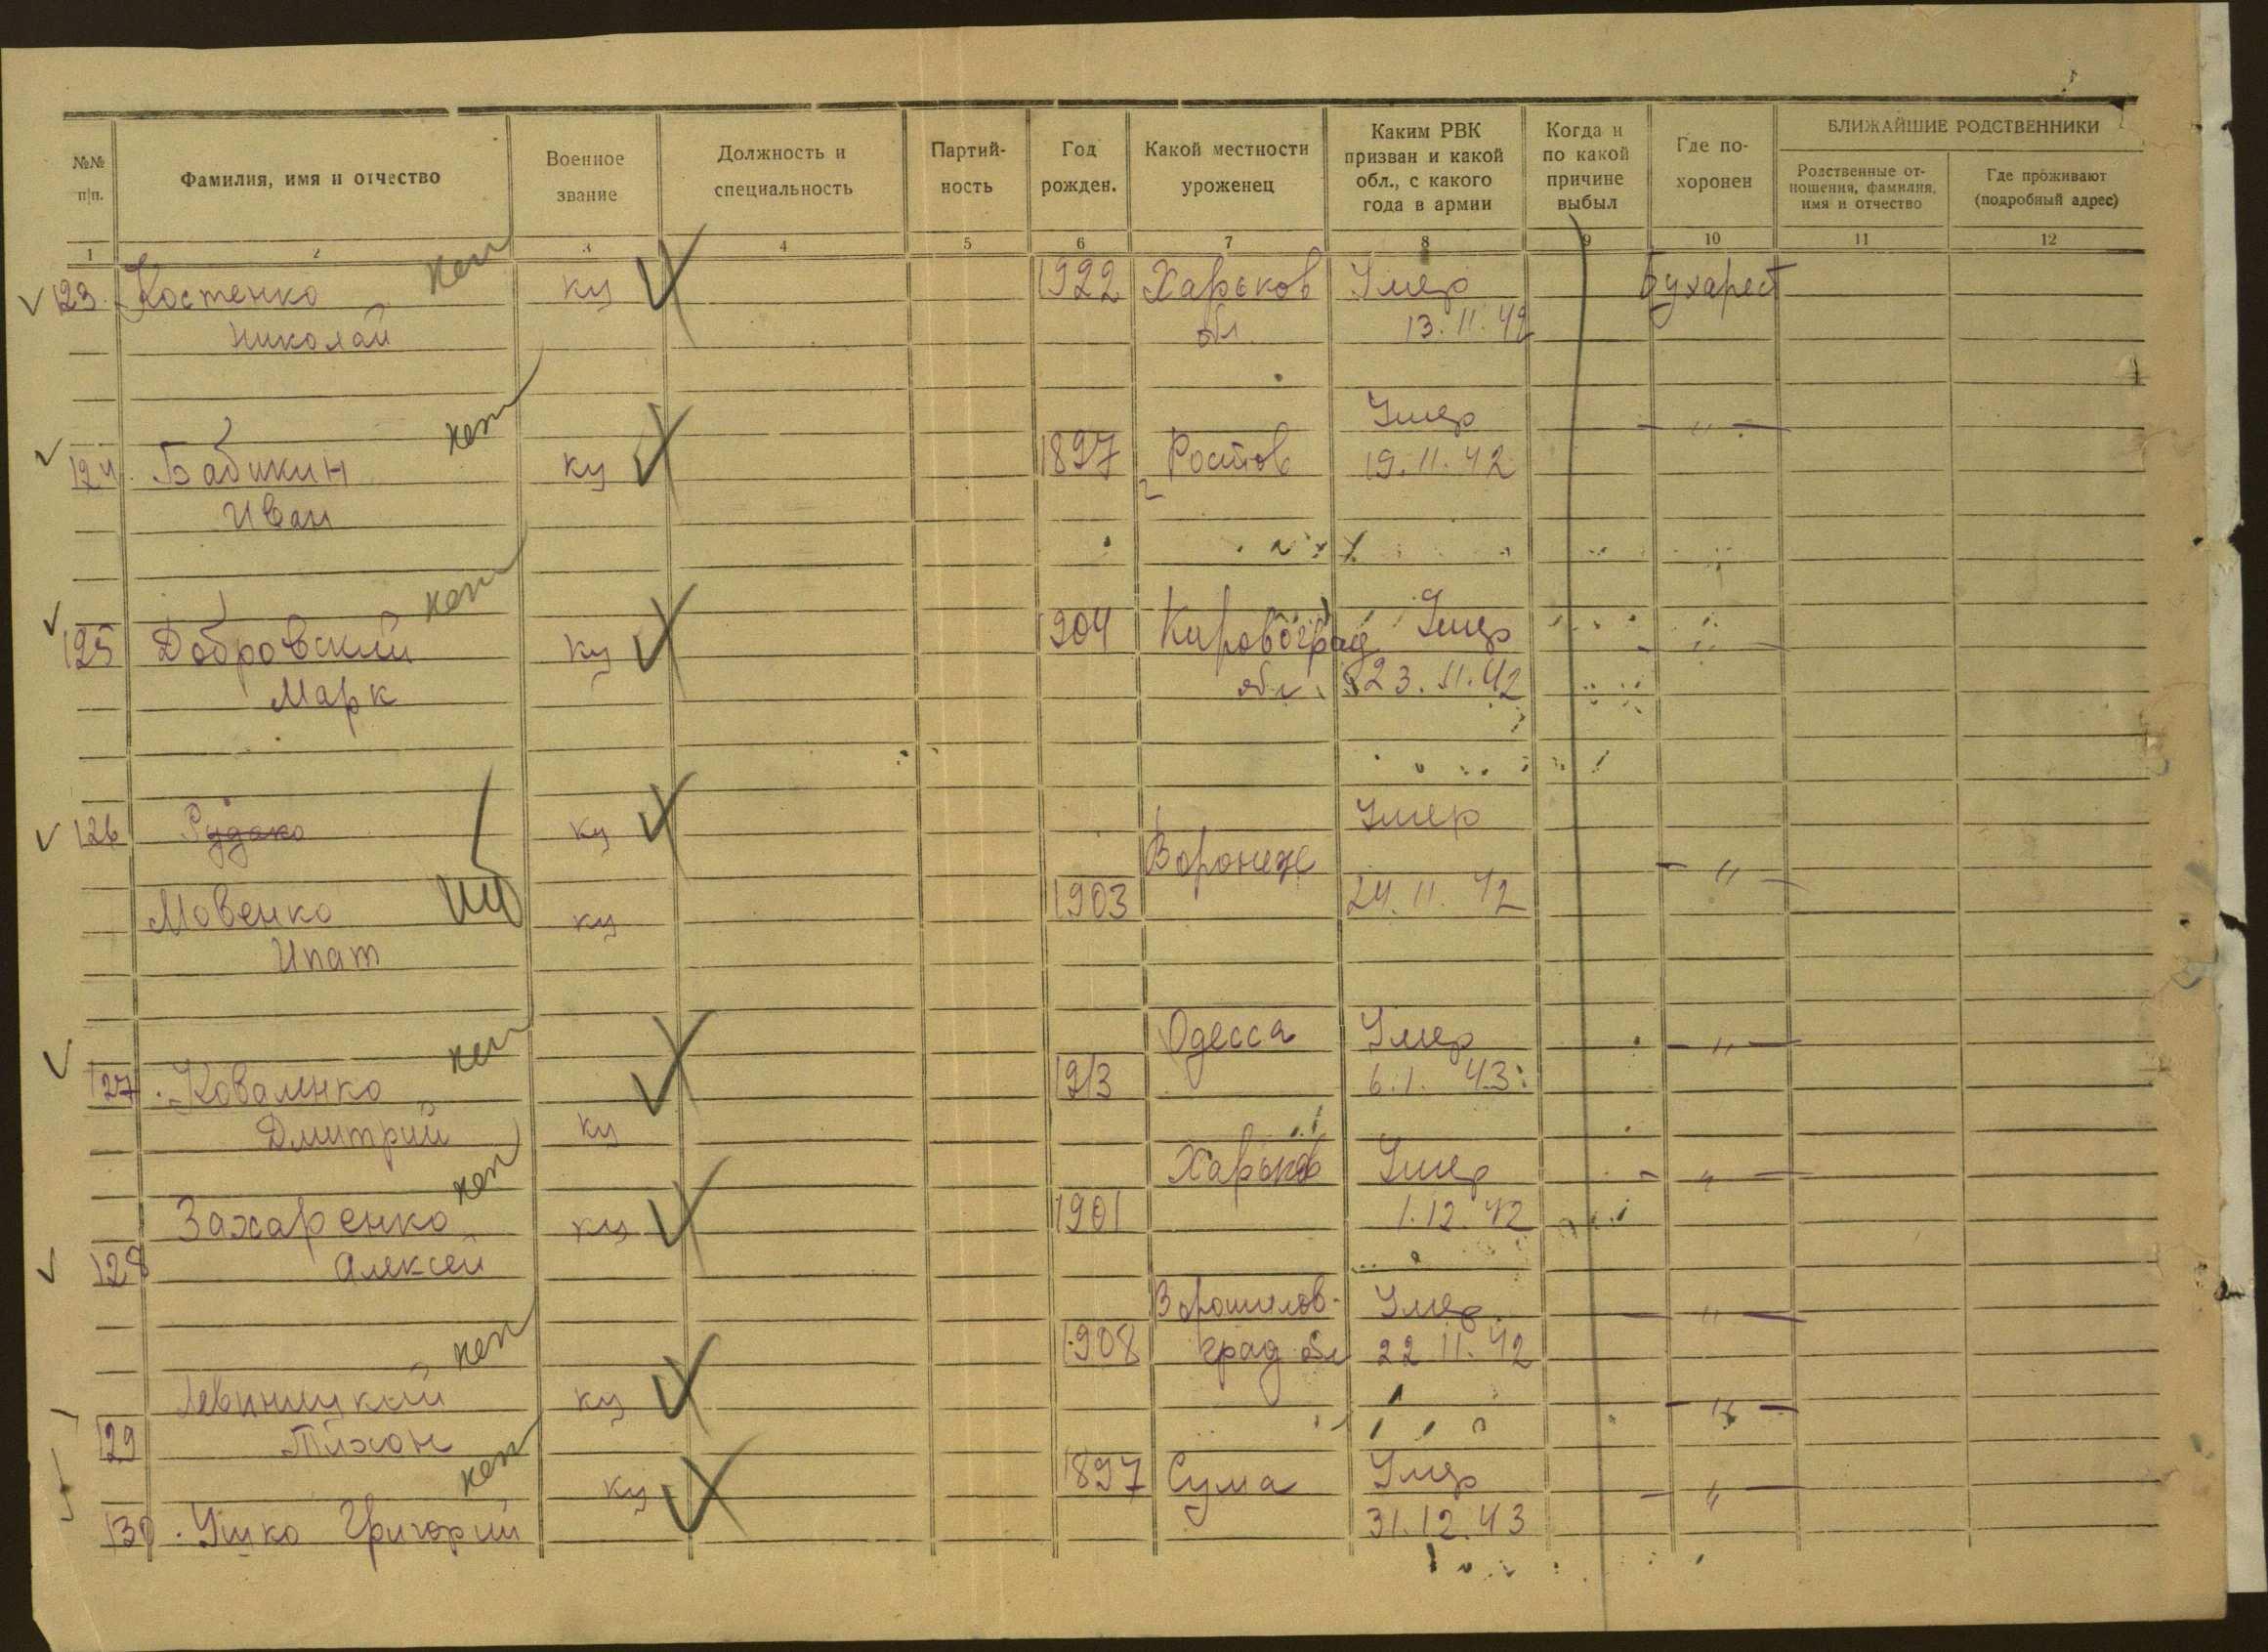 №№ п|п.
Фамилия, имя и отчество
Военное звание
Должность и специальность
Партий-ность
Год рожден.
Какой местности уроженец
Каким РВК призван и какой обл., с какого года в армии
Когда и по какой причине выбыл
Где по-хоронен
БЛИЖАЙШИЕ РОДСТВЕННИКИ
Родственные от-ношения, фамилия, имя и отчество
Где проживают (подробный адрес)
1 2 3 4 5 6 7 8 9 10 11 12
123. Костенко кц 1922 Харьков Умер Бухарест
Николай обл 13.11.42
Умер — " —
124. Бабикин кц 1897 Ростов 19.11.42
Иван
125 Добровский кц 1904 Кировоград Умер — " —
Марк обл. 23.11.42
126 Рудако кц Умер
Воронеж — " —
Мовенко кц 1903 24.11.42
Ипат
Одесса Умер — " —
127. Коваленко 1913 6.1.43
Дмитрий кц
Харьков Умер — " —
Захаренко кц 1901 1.12.42
128 Алексей
Ворошилов- Умер — " —
1908 град обл 22.11.42
кц — " —
129 Тихон
кц 1897 Сума Умер — " —
130. Ушко Григорий 31.12.43